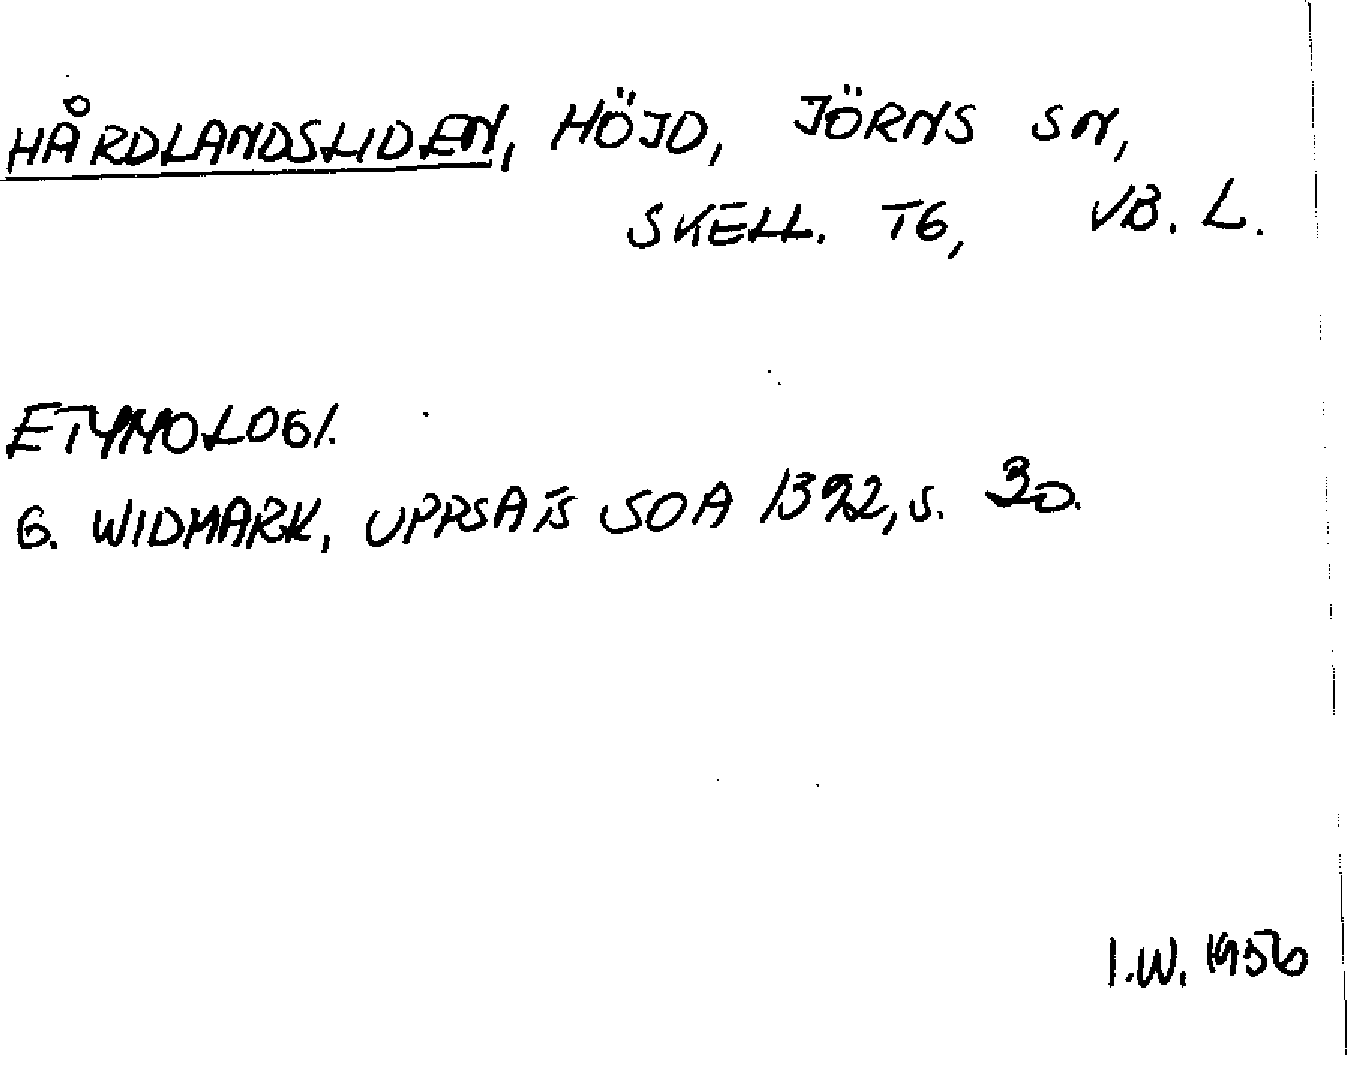 HÅRDLANDSLIDEN, HÖJD, JÖRNS SN,
SKELL. TG, VB. L.
ETYMOLOGI.
G. WIDMARK, UPPSATS SOA 1392, S. 30.
I.W. 1956